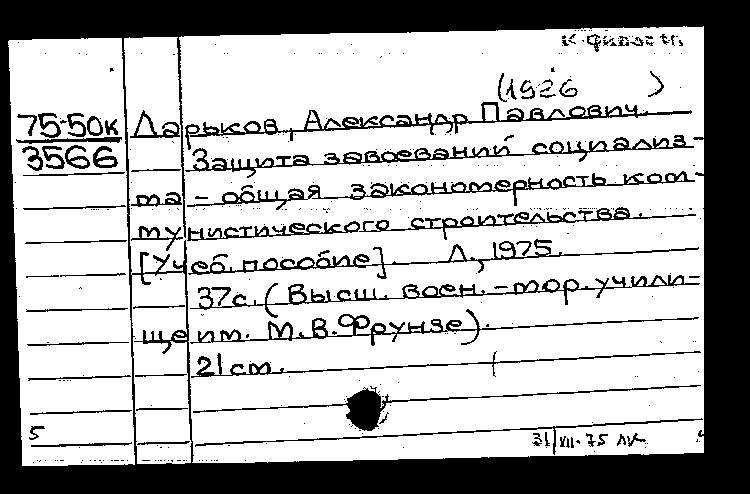 К. Филос м.
(1926 )
75-50к Ларьков, Александр Павлович.
3566 Защита завоеваний социализ-
ма - общая закономерность ком-
мунистического строительства.
[Учеб. пособие]. Л., 1975.
37с. (Высш. воен.-мор. учили-
ще им. М.В.Фрунзе).
21см.
5
31/XII-75 ЛК